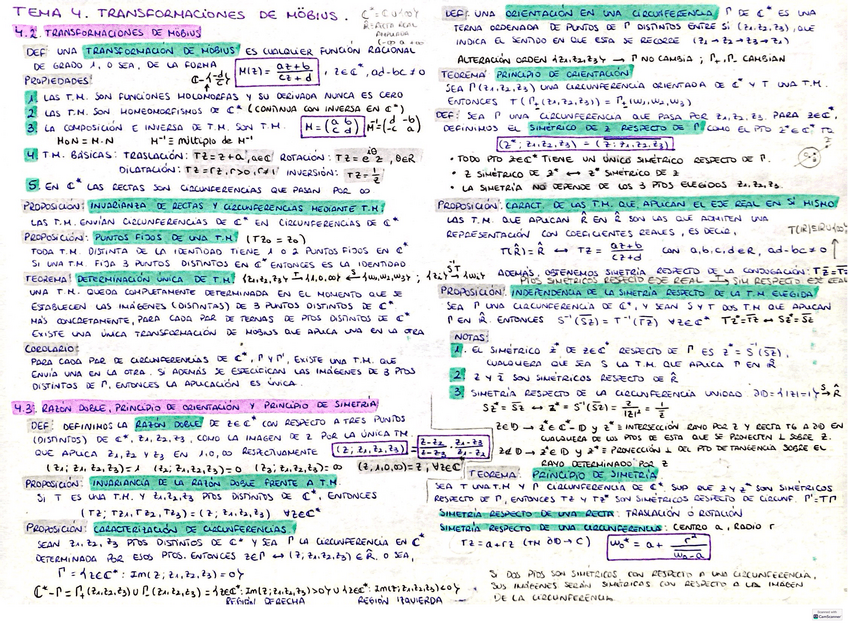 TEMA 4. TRANSFORMACIONES DE MÖBIUS.
ℂ* = ℂ ∪ {∞}
RECTA REAL
AMPLIADA
4.2. TRANSFORMACIONES DE MÖBIUS
DEF: UNA TRANSFORMACIÓN DE MÖBIUS ES CUALQUIER FUNCIÓN RACIONAL
DE GRADO 1, O SEA, DE LA FORMA M(z) = (az+b)/(cz+d), z∈ℂ*, ad-bc≠0
PROPIEDADES: ℂ-{-d/c}
1. LAS T.M. SON FUNCIONES HOLOMORFAS Y SU DERIVADA NUNCA ES CERO
2. LAS T.M. SON HOMEOMORFISMOS DE ℂ* (CONTINUA CON INVERSA EN ℂ*)
3. LA COMPOSICIÓN E INVERSA DE T.M. SON T.M. M = (a b / c d) M⁻¹ = (d -b / -c a)
MoN = M·N M⁻¹ = MÚLTIPLO DE M⁻¹
4. T.M. BÁSICAS: TRASLACIÓN: Tz = z+a, a∈ℂ ROTACIÓN: Tz = e^{iθ} z, θ∈R
DILATACIÓN: Tz = rz, r>0, r≠1 INVERSIÓN: Tz = 1/z
5. EN ℂ* LAS RECTAS SON CIRCUNFERENCIAS QUE PASAN POR ∞
PROPOSICIÓN: INVARIANZA DE RECTAS Y CIRCUNFERENCIAS MEDIANTE T.M.
LAS T.M. ENVÍAN CIRCUNFERENCIAS DE ℂ* EN CIRCUNFERENCIAS DE ℂ*
PROPOSICIÓN: PUNTOS FIJOS DE UNA T.M. (Tz₀ = z₀)
TODA T.M. DISTINTA DE LA IDENTIDAD TIENE 1 O 2 PUNTOS FIJOS EN ℂ*
SI UNA T.M. FIJA 3 PUNTOS DISTINTOS EN ℂ* ENTONCES ES LA IDENTIDAD
TEOREMA: DETERMINACIÓN ÚNICA DE T.M.
UNA T.M. QUEDA COMPLETAMENTE DETERMINADA EN EL MOMENTO QUE SE
ESTABLECEN LAS IMÁGENES (DISTINTAS) DE 3 PUNTOS DISTINTOS DE ℂ*
MÁS CONCRETAMENTE, PARA CADA PAR DE TERNAS DE PTOS DISTINTOS DE ℂ*
EXISTE UNA ÚNICA TRANSFORMACIÓN DE MOBIUS QUE APLICA UNA EN LA OTRA
COROLARIO:
PARA CADA PAR DE CIRCUNFERENCIAS DE ℂ*, Γ Y Γ', EXISTE UNA T.M. QUE
ENVÍA UNA EN LA OTRA. SI ADEMÁS SE ESPECIFICAN LAS IMÁGENES DE 3 PTOS
DISTINTOS DE Γ, ENTONCES LA APLICACIÓN ES ÚNICA.
4.3. RAZÓN DOBLE, PRINCIPIO DE ORIENTACIÓN Y PRINCIPIO DE SIMETRÍA
DEF: DEFINIMOS LA RAZÓN DOBLE DE z∈ℂ* CON RESPECTO A TRES PUNTOS
(DISTINTOS) DE ℂ*, z₁, z₂, z₃, COMO LA IMAGEN DE z POR LA ÚNICA TM
QUE APLICA z₁, z₂ Y z₃ EN 1, 0, ∞ RESPECTIVAMENTE (z; z₁, z₂, z₃) = (z-z₂)/(z-z₃) · (z₁-z₃)/(z₁-z₂)
(z₁; z₁, z₂, z₃) = 1 (z₂; z₁, z₂, z₃) = 0 (z₃; z₁, z₂, z₃) = ∞ (z; 1, 0, ∞) = z, ∀z∈ℂ*
PROPOSICIÓN: INVARIANCIA DE LA RAZÓN DOBLE FRENTE A T.M.
SI T ES UNA T.M. Y z₁, z₂, z₃ PTOS DISTINTOS DE ℂ*, ENTONCES
(Tz; Tz₁, Tz₂, Tz₃) = (z; z₁, z₂, z₃) ∀z∈ℂ*
PROPOSICIÓN: CARACTERIZACIÓN DE CIRCUNFERENCIAS.
SEAN z₁, z₂, z₃ PTOS DISTINTOS DE ℂ* Y SEA Γ LA CIRCUNFERENCIA EN ℂ*
DETERMINADA POR ESOS PTOS. ENTONCES z∈Γ ↔ (z; z₁, z₂, z₃) ∈ R̂. O SEA,
Γ = {z∈ℂ*: Im(z; z₁, z₂, z₃) = 0}
ℂ*-Γ = Γ₊(z₁,z₂,z₃) ∪ Γ₋(z₁,z₂,z₃) = {z∈ℂ*: Im(z; z₁,z₂,z₃)>0} ∪ {z∈ℂ*: Im(z; z₁,z₂,z₃)<0}
REGIÓN DERECHA REGIÓN IZQUIERDA
DEF: UNA ORIENTACIÓN EN UNA CIRCUNFERENCIA Γ DE ℂ* ES UNA
TERNA ORDENADA DE PUNTOS DE Γ DISTINTOS ENTRE SÍ (z₁, z₂, z₃), QUE
INDICA EL SENTIDO EN QUE ESTA SE RECORRE (z₁→z₂→z₃→z₁)
ALTERACIÓN ORDEN {z₁,z₂,z₃} → Γ NO CAMBIA; Γ₊, Γ₋ CAMBIAN
TEOREMA: PRINCIPIO DE ORIENTACIÓN
SEA Γ(z₁,z₂,z₃) UNA CIRCUNFERENCIA ORIENTADA DE ℂ* Y T UNA T.M.
ENTONCES T(Γ±(z₁,z₂,z₃)) = Γ±(w₁,w₂,w₃)
DEF: SEA Γ UNA CIRCUNFERENCIA QUE PASA POR z₁,z₂,z₃. PARA z∈ℂ*,
DEFINIMOS EL SIMÉTRICO DE z RESPECTO DE Γ COMO EL PTO z*∈ℂ*
(z*; z₁, z₂, z₃) = (z; z₁, z₂, z₃)‾
• TODO PTO z∈ℂ* TIENE UN ÚNICO SIMÉTRICO RESPECTO DE Γ.
• z SIMÉTRICO DE z* ↔ z* SIMÉTRICO DE z
• LA SIMETRÍA NO DEPENDE DE LOS 3 PTOS ELEGIDOS z₁,z₂,z₃.
PROPOSICIÓN: CARACT. DE LAS T.M. QUE APLICAN EL EJE REAL EN SÍ MISMO
LAS T.M. QUE APLICAN R̂ EN R̂ SON LAS QUE ADMITEN UNA
REPRESENTACIÓN CON COEFICIENTES REALES, ES DECIR,
T(R̂) = R̂ ↔ Tz = (az+b)/(cz+d) CON a,b,c,d∈R, ad-bc≠0
ADEMÁS, OBTENEMOS SIMETRÍA RESPECTO DE LA CONJUGACIÓN:
PTOS SIMÉTRICOS RESPECTO EJE REAL → SIM RESPECTO EJE REAL
PROPOSICIÓN: INDEPENDENCIA DE LA SIMETRÍA RESPECTO DE LA T.M. ELEGIDA
SEA Γ UNA CIRCUNFERENCIA DE ℂ*, Y SEAN S Y T DOS T.M. QUE APLICAN
Γ EN R̂. ENTONCES S⁻¹(S̅z̅) = T⁻¹(T̅z̅) ∀z∈ℂ*
NOTAS:
1. EL SIMÉTRICO z* DE z∈ℂ* RESPECTO DE Γ ES z* = S⁻¹(S̅z̅),
CUALQUIERA QUE SEA S LA T.M. QUE APLICA Γ EN R̂
2. z Y z̄ SON SIMÉTRICOS RESPECTO DE R̂
3. SIMETRÍA RESPECTO DE LA CIRCUNFERENCIA UNIDAD. ∂D = {|z|=1} →S R̂
Sz* = S̅z̅ ↔ z* = S⁻¹(S̅z̅) = z/|z|² = 1/z̄
z∈D → z*∈ℂ*-D Y z* ≡ INTERSECCIÓN RAYO POR z Y RECTA TG A ∂D EN
CUALQUIERA DE LOS PTOS DE ESTA QUE SE PROYECTEN ⊥ SOBRE z.
z∉D → z*∈D Y z* ≡ PROYECCIÓN ⊥ DEL PTO DE TANGENCIA SOBRE EL
RAYO DETERMINADO POR z
TEOREMA: PRINCIPIO DE SIMETRÍA
SEA T UNA T.M. Y Γ CIRCUNFERENCIA DE ℂ*. SUP QUE z Y z* SON SIMÉTRICOS
RESPECTO DE Γ, ENTONCES Tz Y Tz* SON SIMÉTRICOS RESPECTO DE CIRCUNF. Γ' = TΓ
SIMETRÍA RESPECTO DE UNA RECTA: TRASLACIÓN O ROTACIÓN
SIMETRÍA RESPECTO DE UNA CIRCUNFERENCIA: CENTRO a, RADIO r
Tz = a+rz (TM ∂D→C) w₀* = a + r²/(w̅₀̅-̅a̅)
SI DOS PTOS SON SIMÉTRICOS CON RESPECTO A UNA CIRCUNFERENCIA,
SUS IMÁGENES SERÁN SIMÉTRICAS CON RESPECTO A LA IMAGEN
DE LA CIRCUNFERENCIA
CamScanner